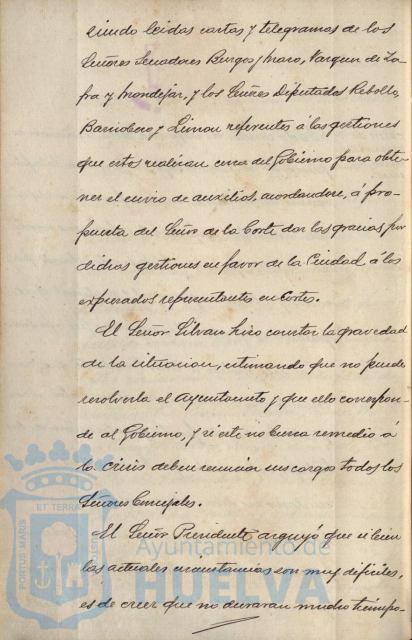 siendo leidas cartas y telegramas de los
Señores Senadores Burgos y Mazo, Vazquez de Za-
fra y Mondejar, y los Señores Diputados Rebollo,
Barriobero y Limon referentes á las gestiones
que estos realizan cerca del Gobierno para obte-
ner el envio de auxilios, acordandose, á pro-
puesta del Señor de la Corte dar las gracias por
dichas gestiones en favor de la Ciudad á los
expresados representantes en Cortes.
El Señor Silvan hizo constar la gravedad
de la situacion, estimando que no puede
resolverla el Ayuntamiento y que ello correspon-
de al Gobierno, y si este no busca remedio á
la crisis deben renunciar sus cargos todos los
Señores Concejales.
El Señor Presidente arguyó que si bien
las actuales circunstancias son muy dificiles,
es de creer que no duraran mucho tiempo
PORTUS MARIS
ET TERRAE
Ayuntamiento de
HUELVA